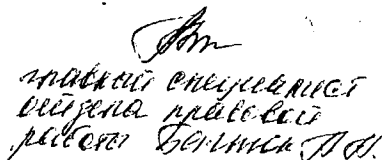 главный специалист
отдела правовой
работы